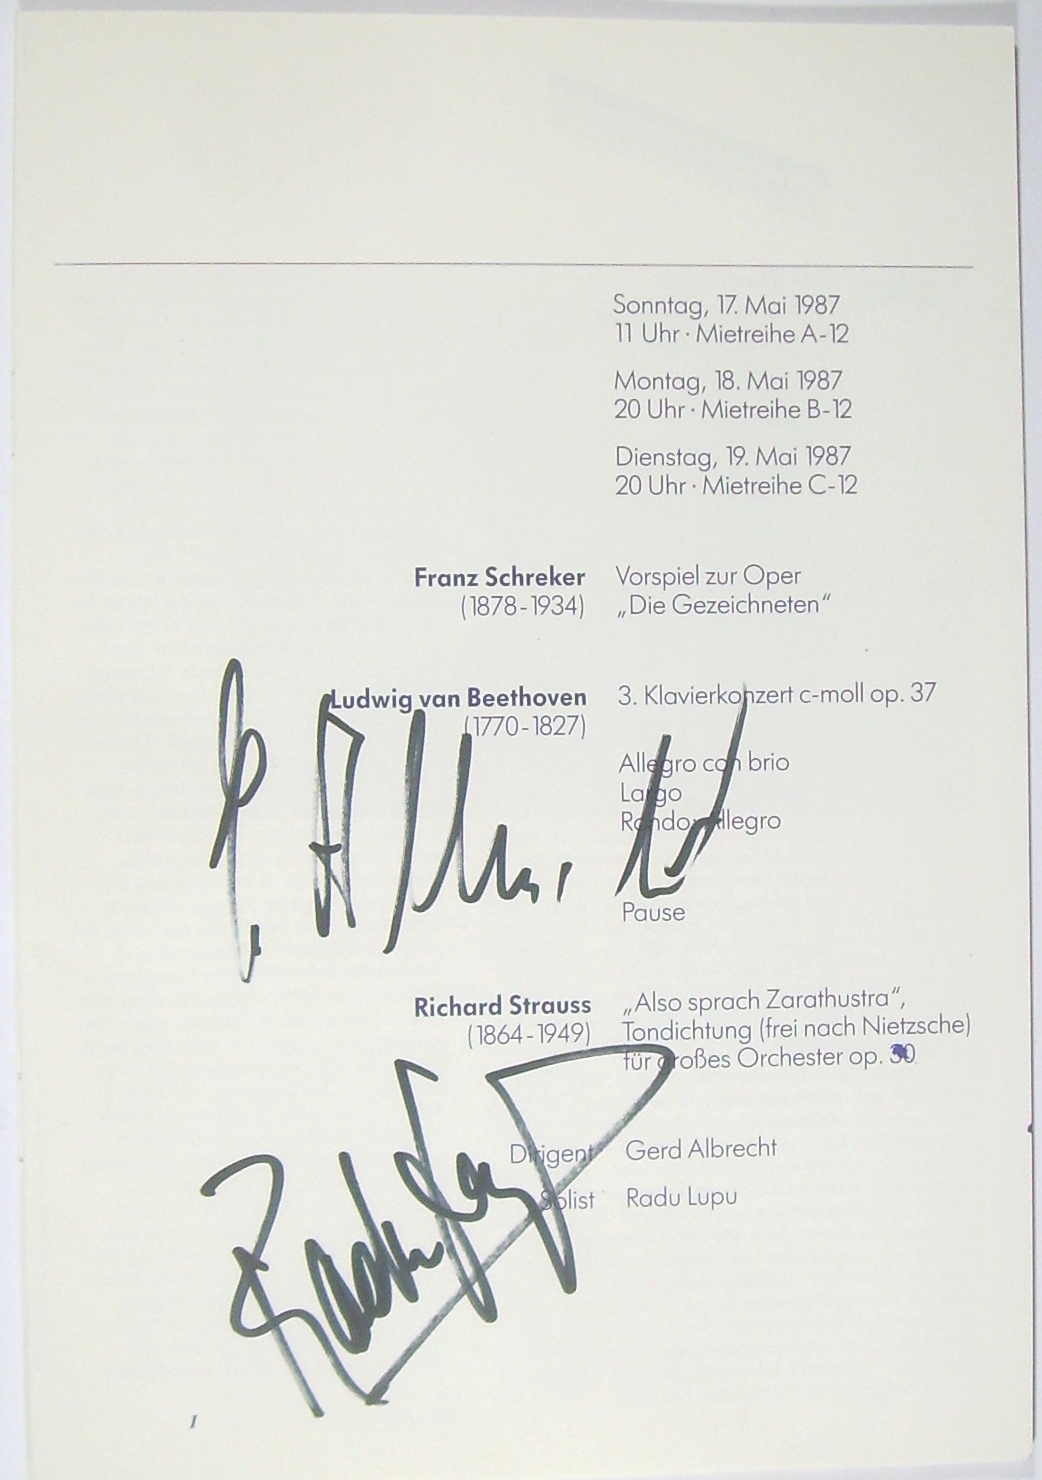 Sonntag, 17. Mai 1987
11 Uhr · Mietreihe A-12
Montag, 18. Mai 1987
20 Uhr · Mietreihe B-12
Dienstag, 19. Mai 1987
20 Uhr · Mietreihe C-12
Franz Schreker Vorspiel zur Oper
(1878-1934) „Die Gezeichneten“
Ludwig van Beethoven 3. Klavierkonzert c-moll op. 37
(1770-1827)
Allegro con brio
Largo
Rondo. Allegro
G. Albrecht
Pause
Richard Strauss „Also sprach Zarathustra“,
(1864-1949) Tondichtung (frei nach Nietzsche)
für großes Orchester op. 30
Dirigent Gerd Albrecht
Solist Radu Lupu
Radu Lupu
1